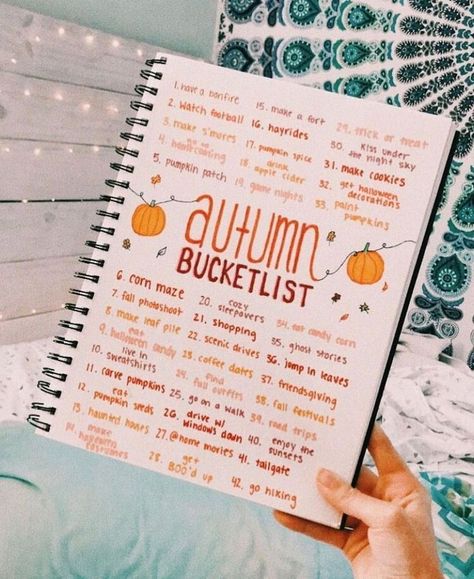 1. have a bonfire
2. Watch football
3. make s'mores
4. go homecoming
5. pumpkin patch
15. make a fort
16. hayrides
17. pumpkin spice
18. drink apple cider
19. game nights
29. trick or treat
30. Kiss under the night sky
31. make cookies
32. get halloween decorations
33. paint pumpkins
autumn
BUCKETLIST
6. corn maze
7. fall photoshoot
8. make leaf pile
9. eat halloween candy
10. live in sweatshirts
11. carve pumpkins
12. eat pumpkin seeds
13. haunted houses
14. make halloween costumes
20. cozy sleepovers
21. shopping
22. scenic drives
23. coffee dates
24. find fall outfits
25. go on a walk
26. drive w/ windows down
27. @home movies
28. get BOO'd up
34. eat candy corn
35. ghost stories
36. jump in leaves
37. friendsgiving
38. fall festivals
39. road trips
40. enjoy the sunsets
41. tailgate
42. go hiking